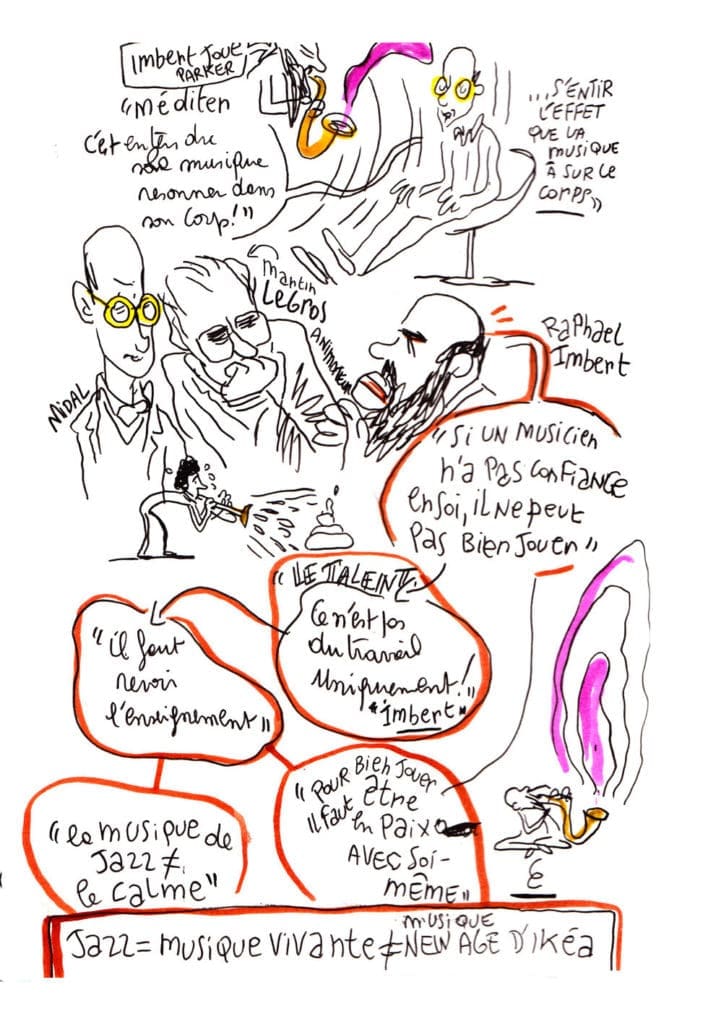 Imbert Joue
PARKER
"Méditer
c'est entendre
sa musique
resonner dans
son corps!"
...S'ENTIR
L'EFFET
QUE LA
MUSIQUE
À SUR LE
CORPS"
Martin
LEGROS
ANIMATEUR
NIDAL
RAPHAEL
IMBERT
"Si UN MUSICIEN
n'a PAS CONFIANCE
EN SOI, il NE peut
PAS BIEN JOUER"
"LE TALENT.
Ce n'est pas
du travail
Uniquement!"
"IMBERT"
"il faut
revoir
l'enseignement"
"POUR BIEN JOUER
IL FAUT être
en PAIX
AVEC SOI-
MÊME"
"la musique de
JAZZ ≠
le calme"
&
MUSIQUE
JAZZ = musique vivante ≠ NEW AGE D'IKéa